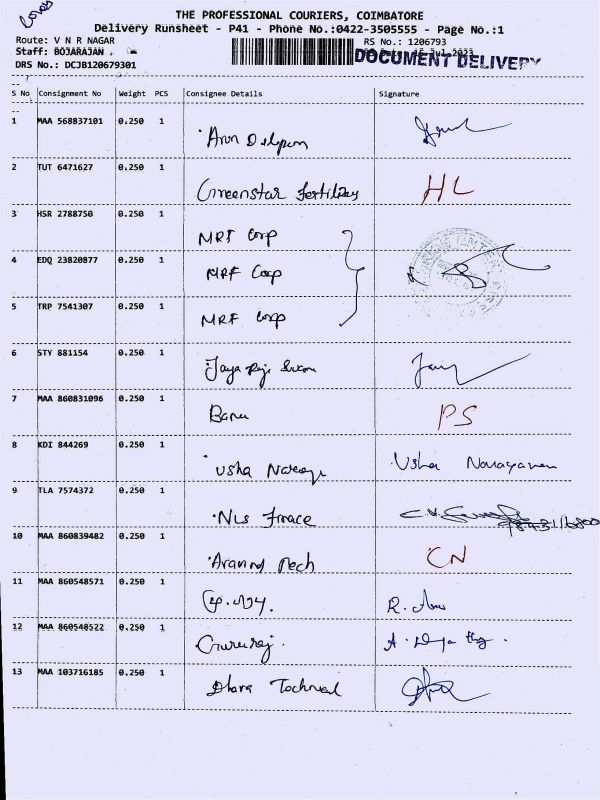 THE PROFESSIONAL COURIERS, COIMBATORE
Delivery Runsheet - P41 - Phone No.:0422-3505555 - Page No.:1
Route: V N R NAGAR RS No.: 1206793
Staff: BOJARAJAN . Date: 15-Jul-2023
DOCUMENT DELIVERY
DRS No.: DCJB120679301
S No Consignment No Weight PCS Consignee Details Signature
1 MAA 568837101 0.250 1 Arun
2 TUT 6471627 0.250 1 Greenstar Fertilizers HL
3 HSR 2788750 0.250 1 MRF Corp
4 EDQ 23820877 0.250 1 MRF Corp
5 TRP 7541307 0.250 1 MRF Corp
6 STY 881154 0.250 1 Jaya
7 MAA 860831096 0.250 1 Banu PS
8 KDI 844269 0.250 1 Usha Usha Narayanan
9 TLA 7574372 0.250 1 C.V.
10 MAA 860839482 0.250 1 Aravind Mech CN
11 MAA 860548571 0.250 1 R.
12 MAA 860548522 0.250 1 Gururaj. A.
13 MAA 103716185 0.250 1 Dhara Technical